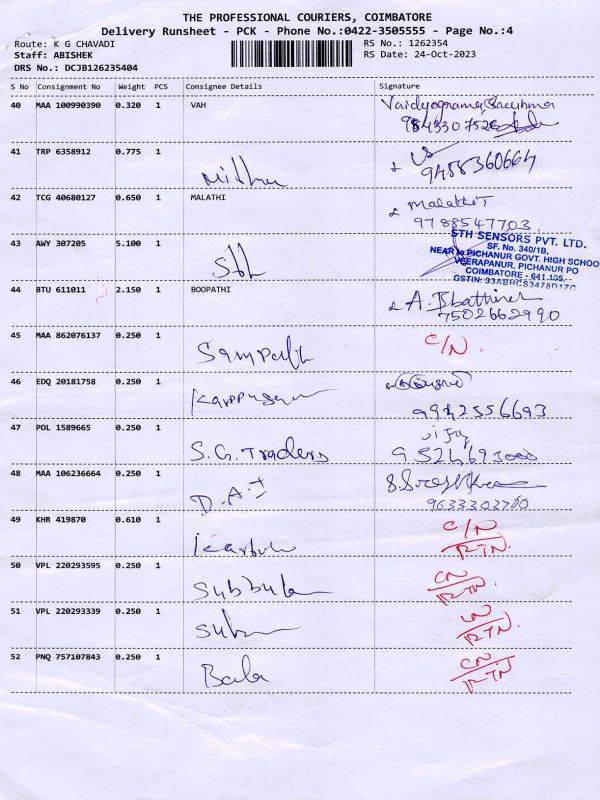 THE PROFESSIONAL COURIERS, COIMBATORE
Delivery Runsheet - PCK - Phone No.:0422-3505555 - Page No.:4
Route: K G CHAVADI
RS No.: 1262354
Staff: ABISHEK
RS Date: 24-Oct-2023
DRS No.: DCJB126235404
S No Consignment No Weight PCS Consignee Details Signature
40 MAA 100990390 0.320 1 VAH
41 TRP 6358912 0.775 1 9488360664
42 TCG 40680127 0.650 1 MALATHI Malathi T
9788547703
STH SENSORS PVT. LTD.
43 AWY 307205 5.100 1 Sth SF. No. 340/1B,
NEAR PICHANUR GOVT. HIGH SCHOOL
VEERAPANUR, PICHANUR PO
COIMBATORE - 641 105.
GSTIN: 33ABHCS3478D1ZC
44 BTU 611011 2.150 1 BOOPATHI
7502662990
45 MAA 862076137 0.250 1 Sampath C/N.
46 EDQ 20181758 0.250 1
9942556693
47 POL 1589665 0.250 1 S.G. Traders
48 MAA 106236664 0.250 1 D.A.T
9633302700
49 KHR 419870 0.610 1 C/N
RTN.
50 VPL 220293595 0.250 1 CN
RTN.
51 VPL 220293339 0.250 1
RTN.
52 PNQ 757107843 0.250 1 Bala CN
RTN.